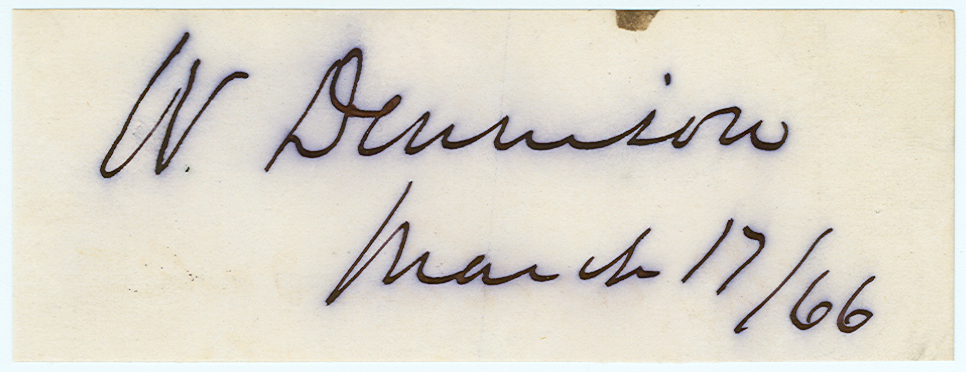 W. Dennison
March 17/66